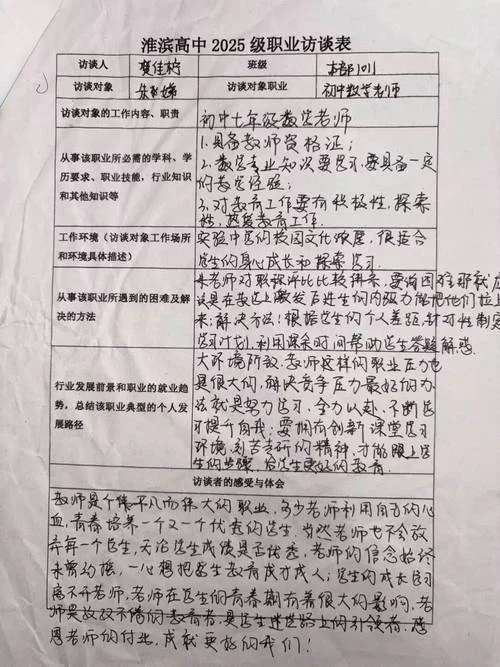 淮滨高中 2025 级职业访谈表
访谈人 樊佳柠 班级 本部1011
访谈对象 访谈对象职业 初中数学老师
访谈对象的工作内容、职责 初中七年级数学老师
从事该职业所必需的学科、学
历要求、职业技能,行业知识
和其他知识等
1.具备教师资格证;
2.数学专业知识要学习,要具备一定
的教学经验;
3.对教育工作要有积极性,探索
性,热爱教育工作。
工作环境(访谈对象工作场所
和环境具体描述)
实验中学的校园文化浓厚,很适合
学生的身心成长和探索学习.
从事该职业所遇到的困难及解
决的方法
朱老师对职称评比比较
在教学上激发后进生的内驱力,能把他们拉上
来;解决方法:根据学生的个人差距,针对性制定
学习计划,利用课余时间帮助学生答题解惑
行业发展前景和职业的就业趋
势,总结该职业典型的个人发
展路径
大环境所致,教师这样的职业压力也
是很大的,解决竞争压力最好的方
法就是努力学习,全力以赴,不断学
习提升自我;要拥有创新课堂学习
环境,刻苦专研的精神,才能跟上学
生的步骤,给学生更好的教育.
访谈者的感受与体会
教师是个平凡而伟大的职业,多少老师利用自己的心
血,青春培养一个又一个优秀的学生,当然老师也不会放
弃每一个学生,无论学生成绩是否优秀,老师的信念始终
未曾动摇,一心想把学生教育成才成人;学生的成长学习
离不开老师,老师在学生的青春期有着很大的影响,老
师是孜孜不倦的教育者,是学生迷途路上的引领者,感
恩老师的付出,成就更好的我们!